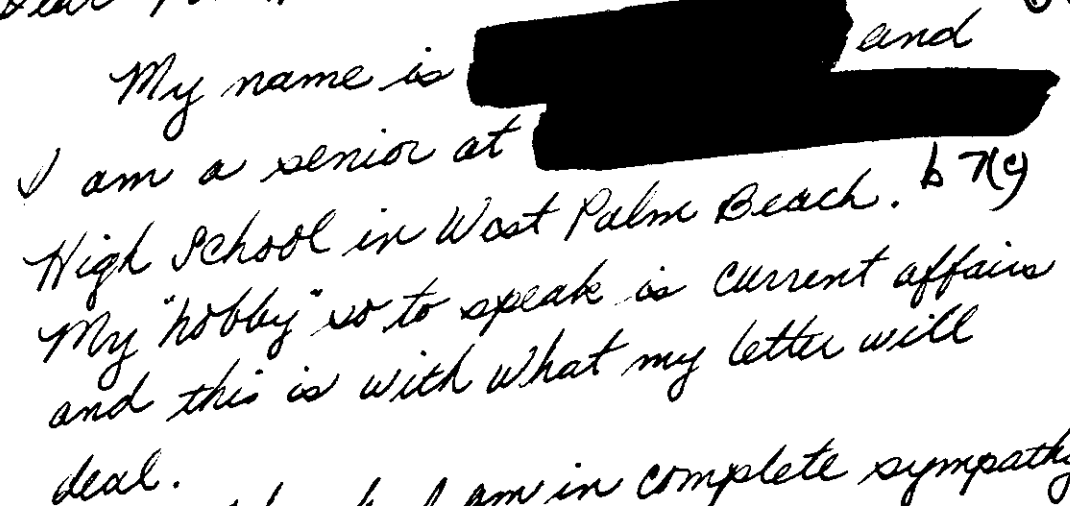 Dear
My name is and
I am a senior at
b7(C)
High School in West Palm Beach.
My "hobby" so to speak is current affairs
and this is with what my letter will
deal.
I am in complete sympathy